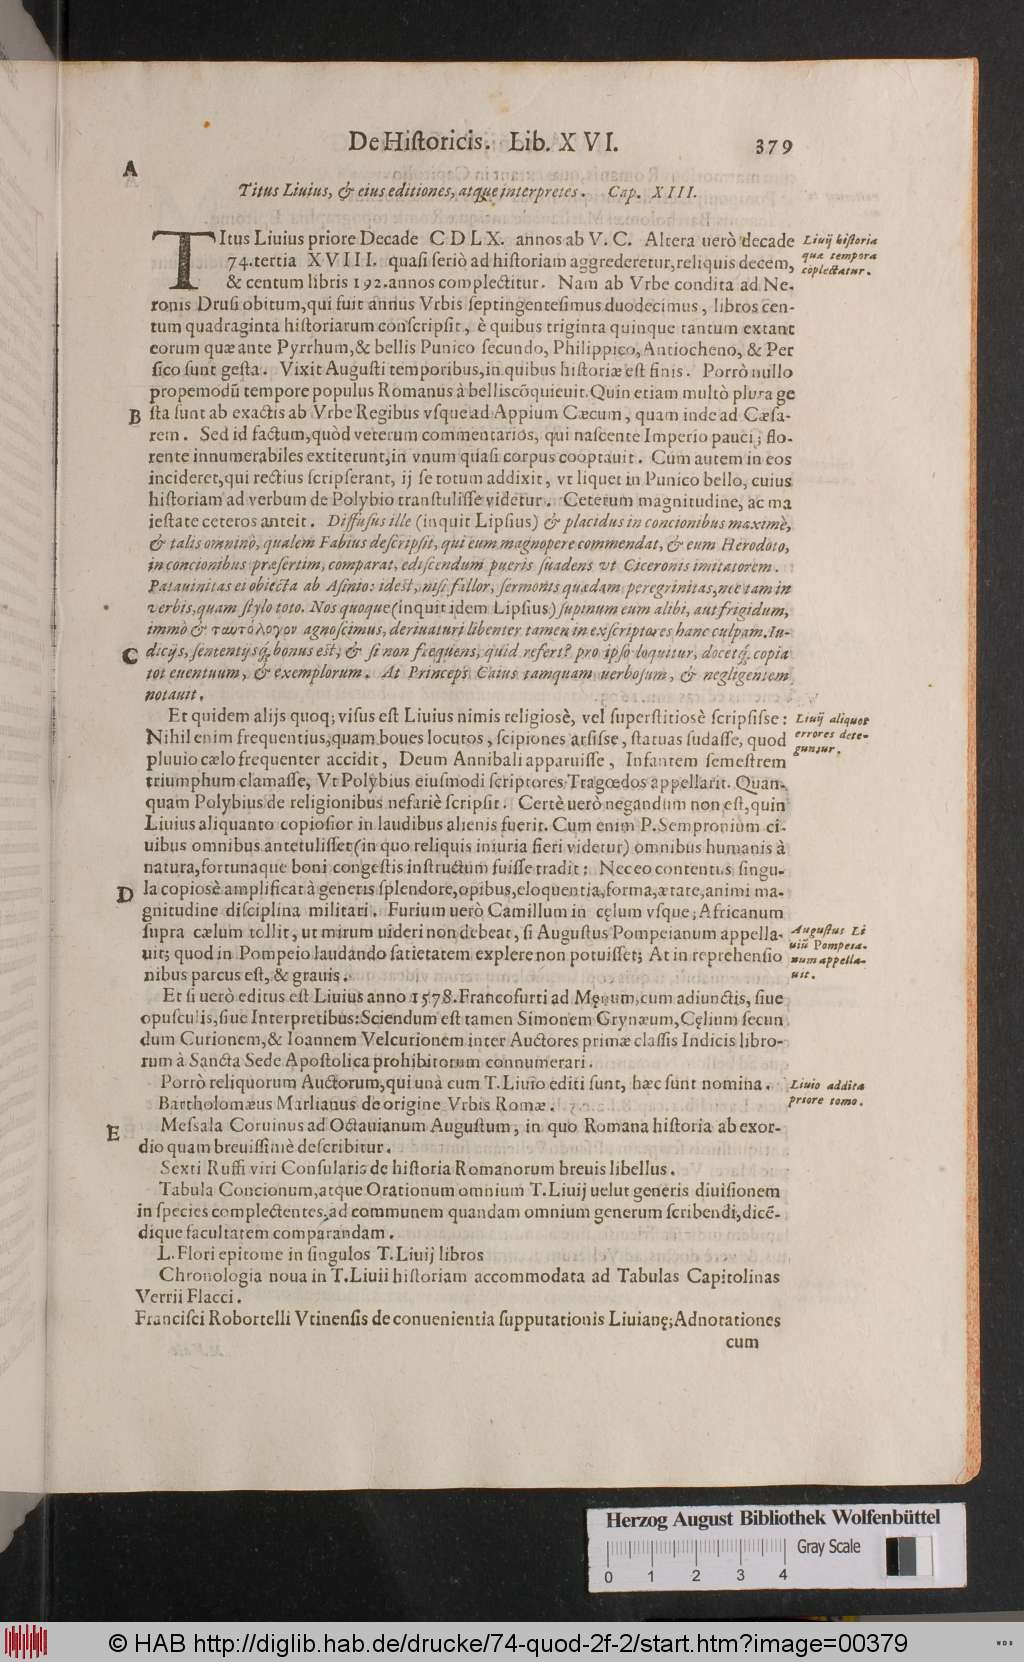 De Hiſtoricis. Lib. XVI. 379
A
Titus Liuius, & eius editiones, atque interpretes. Cap. XIII.
TItus Liuius priore Decade CDLX. annos ab V. C. Altera uerò decade
74. tertia XVIII. quaſi ſeriò ad hiſtoriam aggrederetur, reliquis decem,
& centum libris 192. annos complectitur. Nam ab Vrbe condita ad Ne-
ronis Druſi obitum, qui fuit annus Vrbis ſeptingenteſimus duodecimus, libros cen-
tum quadraginta hiſtoriarum conſcripſit, è quibus triginta quinque tantum extant
eorum quæ ante Pyrrhum, & bellis Punico ſecundo, Philippico, Antiocheno, & Per
ſico ſunt geſta. Vixit Auguſti temporibus, in quibus hiſtoriæ eſt finis. Porrò nullo
propemodũ tempore populus Romanus à bellis cõquieuit. Quin etiam multò plura ge
ſta ſunt ab exactis ab Vrbe Regibus vſque ad Appium Cæcum, quam inde ad Cæſa-
rem. Sed id factum, quòd veterum commentarios, qui naſcente Imperio pauci; flo-
rente innumerabiles extiterunt, in vnum quaſi corpus cooptauit. Cum autem in eos
incideret, qui rectius ſcripſerant, ij ſe totum addixit, vt liquet in Punico bello, cuius
hiſtoriam ad verbum de Polybio tranſtuliſſe videtur. Ceterum magnitudine, ac ma
ieſtate ceteros anteit. Diffuſus ille (inquit Lipſius) & placidus in concionibus maximè,
& talis omnino, qualem Fabius deſcripſit, qui eum magnopere commendat, & eum Herodoto,
in concionibus præſertim, comparat, ediſcendum pueris ſuadens vt Ciceronis imitatorem.
Patauinitas ei obiecta ab Aſinio: ideſt, niſi fallor, ſermonis quædam peregrinitas, nec tam in
verbis, quam ſtylo toto. Nos quoque (inquit idem Lipſius) ſupinum eum alibi, aut frigidum,
immò & ταυτόλογον agnoſcimus, deriuaturi libenter tamen in exſcriptores hanc culpam. Iu-
dicijs, ſententijsq́; bonus eſt, & ſi non frequens, quid refert? pro ipſo loquitur, docetq́; copia
tot euentuum, & exemplorum. At Princeps Caius tamquam uerboſum, & negligentem
notauit.
Et quidem alijs quoq; viſus eſt Liuius nimis religioſè, vel ſuperſtitioſè ſcripſiſse:
Nihil enim frequentius, quam boues locutos, ſcipiones arſiſse, ſtatuas ſudaſſe, quod
pluuio cælo frequenter accidit, Deum Annibali apparuiſſe, Infantem ſemeſtrem
triumphum clamaſſe, Vt Polybius eiuſmodi ſcriptores Tragœdos appellarit. Quan-
quam Polybius de religionibus nefariè ſcripſit. Certè uerò negandum non eſt, quin
Liuius aliquanto copioſior in laudibus alienis fuerit. Cum enim P. Sempronium ci-
uibus omnibus antetuliſſet (in quo reliquis iniuria fieri videtur) omnibus humanis à
natura, fortunaque boni congeſtis inſtructum fuiſſe tradit: Nec eo contentus ſingu-
la copioſè amplificat à generis ſplendore, opibus, eloquentia, forma, ætate, animi ma-
gnitudine diſciplina militari. Furium uerò Camillum in cęlum vſque; Africanum
ſupra cælum tollit, ut mirum uideri non debeat, ſi Auguſtus Pompeianum appella-
uit; quod in Pompeio laudando ſatietatem explere non potuiſſet; At in reprehenſio
nibus parcus eſt, & grauis.
Et ſi uerò editus eſt Liuius anno 1578. Francofurti ad Męnum, cum adiunctis, ſiue
opuſculis, ſiue Interpretibus: Sciendum eſt tamen Simonem Grynæum, Cęlium ſecun
dum Curionem, & Ioannem Velcurionem inter Auctores primæ claſſis Indicis libro-
rum à Sancta Sede Apoſtolica prohibitorum connumerari.
Porrò reliquorum Auctorum, qui unà cum T. Liuio editi ſunt, hæc ſunt nomina.
Bartholomæus Marlianus de origine Vrbis Romæ.
Meſsala Coruinus ad Octauianum Auguſtum, in quo Romana hiſtoria ab exor-
dio quam breuiſſimè deſcribitur.
Sexti Ruffi viri Conſularis de hiſtoria Romanorum breuis libellus.
Tabula Concionum, atque Orationum omnium T. Liuij uelut generis diuiſionem
in ſpecies complectentes, ad communem quandam omnium generum ſcribendi, dicẽ-
dique facultatem comparandam.
L. Flori epitome in ſingulos T. Liuij libros
Chronologia noua in T. Liuii hiſtoriam accommodata ad Tabulas Capitolinas
Verrii Flacci.
Franciſci Robortelli Vtinenſis de conuenientia ſupputationis Liuianę; Adnotationes
cum
B
C
D
E
Liuij hiſtoria
quæ tempora
cõplectatur.
Liuij aliquot
errores dete-
guntur.
Auguſtus Li
uiũ Pompeia-
num appella-
uit.
Liuio addita
priore tomo.
Herzog August Bibliothek Wolfenbüttel
Gray Scale
0 1 2 3 4
© HAB http://diglib.hab.de/drucke/74-quod-2f-2/start.htm?image=00379